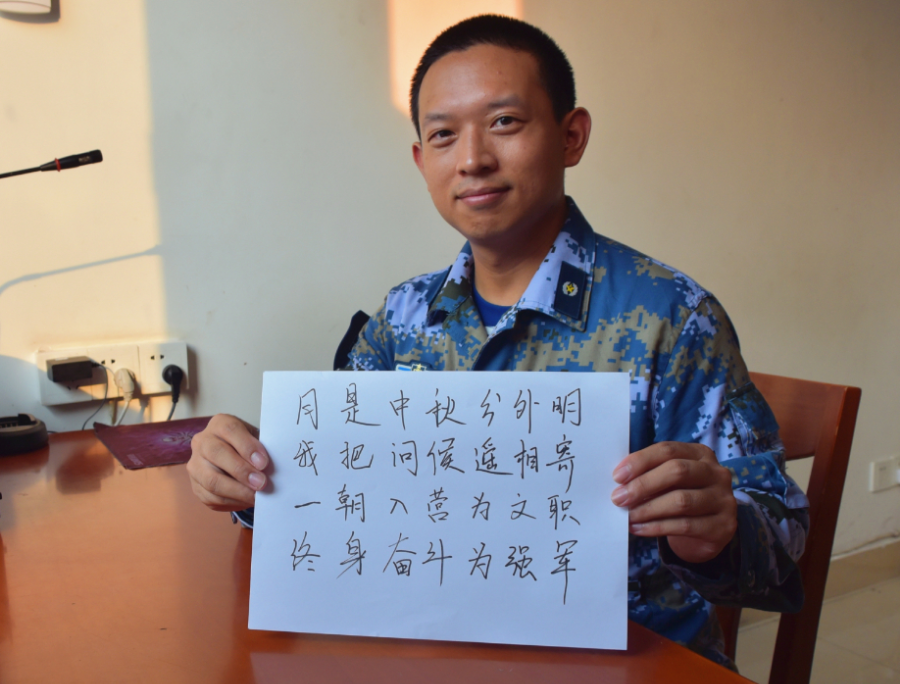 月是中秋分外明
我把问候遥相寄
一朝入营为文职
终身奋斗为强军